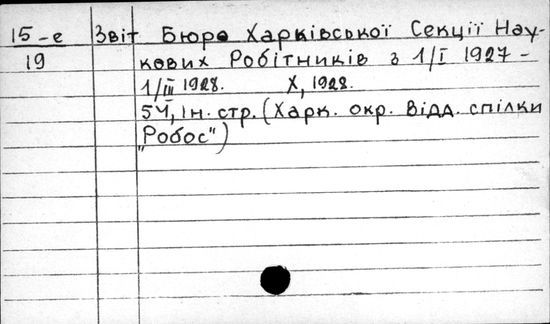 15-е Звіт Бюро Харківської Секції Нау-
19 кових Робітників з 1/I 1927 -
1/III 1928. X, 1928.
54, Iн. стр. (Харк. окр. Відд. спілки
"Робос")